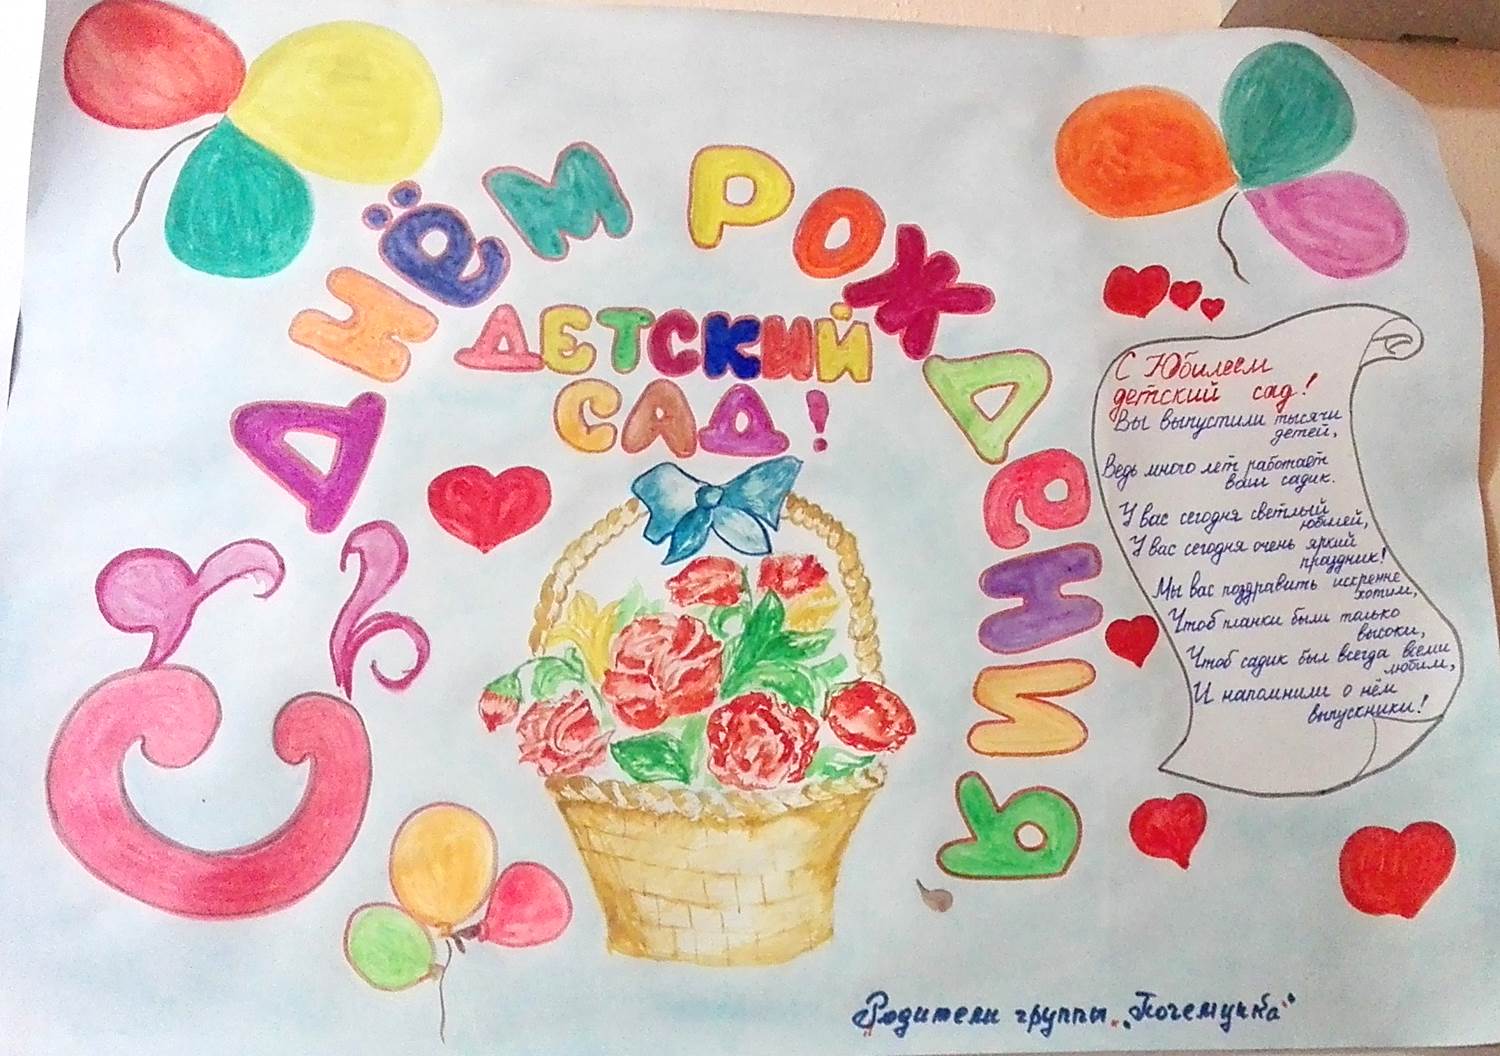 С ДНЁМ РОЖДЕНИЯ
ДЕТСКИЙ
САД!
С Юбилеем
детский сад!
Вы выпустили тысячи
детей,
Ведь много лет работает
ваш садик.
У вас сегодня светлый
юбилей,
У вас сегодня очень яркий
праздник!
Мы вас поздравить искренне
хотим,
Чтоб планки были только
высоки,
Чтоб садик был всегда всеми
любим,
И напомнили о нём
выпускники!
Родители группы „Почемучка"